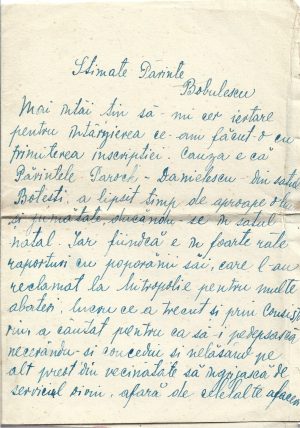 Stimate Părinte
Bobulescu
Mai întâi țin să-mi cer iertare
pentru întârzierea ce-am făcut-o cu
trimiterea inscripției. Cauza e că
Părintele Paroch - Danielescu - Din satul
Botești, a lipsit timp de aproape o lu
și jumătate, ducându-se în satul
natal. Iar fiindcă e în foarte rele
raporturi cu poporănii săi, care l-au
reclamat la Mitropolie pentru multe
abateri, lucru ce a trecut și prin
a căutat pentru ca să-i pedepsească
necerându-și concediu și nelăsând pe
alt preot din vecinătate să îngrijească de
serviciul divin, afară de celelalte afaceri